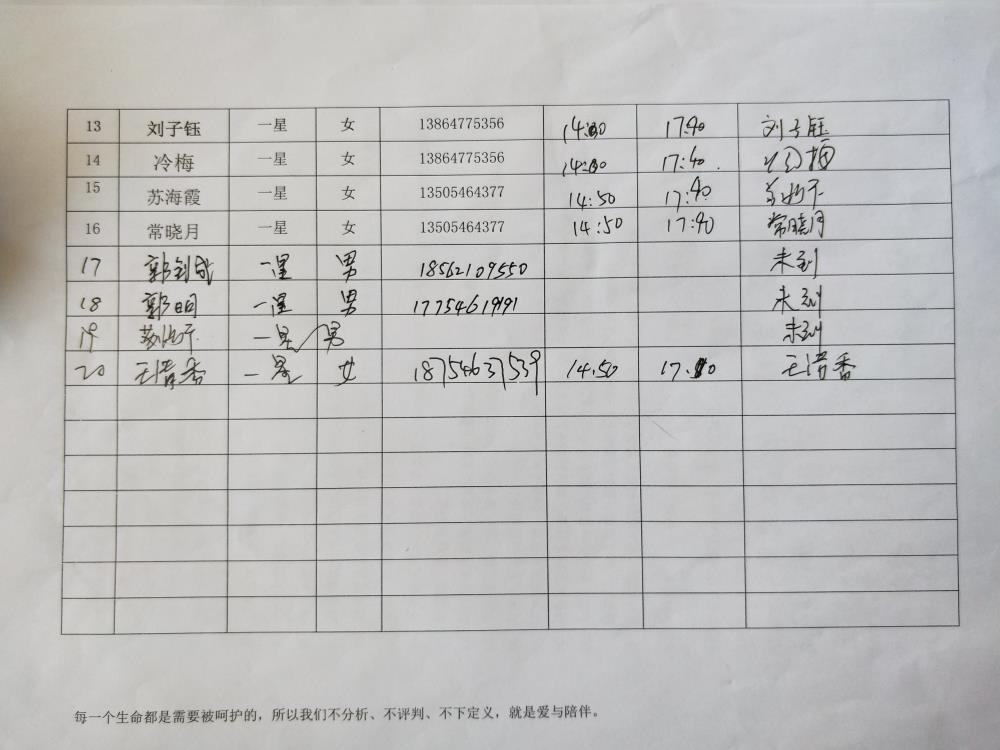 13 刘子钰 一星 女 13864775356 17:40 刘子钰
14 冷梅 一星 女 13864775356 17:40. 冷梅
15 苏海霞 一星 女 13505464377 14:50 17:40
16 常晓月 一星 女 13505464377 14:50 17:40 常晓月
17 一星 男 18562109550 未到
18 郭明 一星 男 17754619191 未到
19 一星 男 未到
20 王清香 一星 女 18754637539 14.50 王清香
每一个生命都是需要被呵护的，所以我们不分析、不评判、不下定义，就是爱与陪伴。